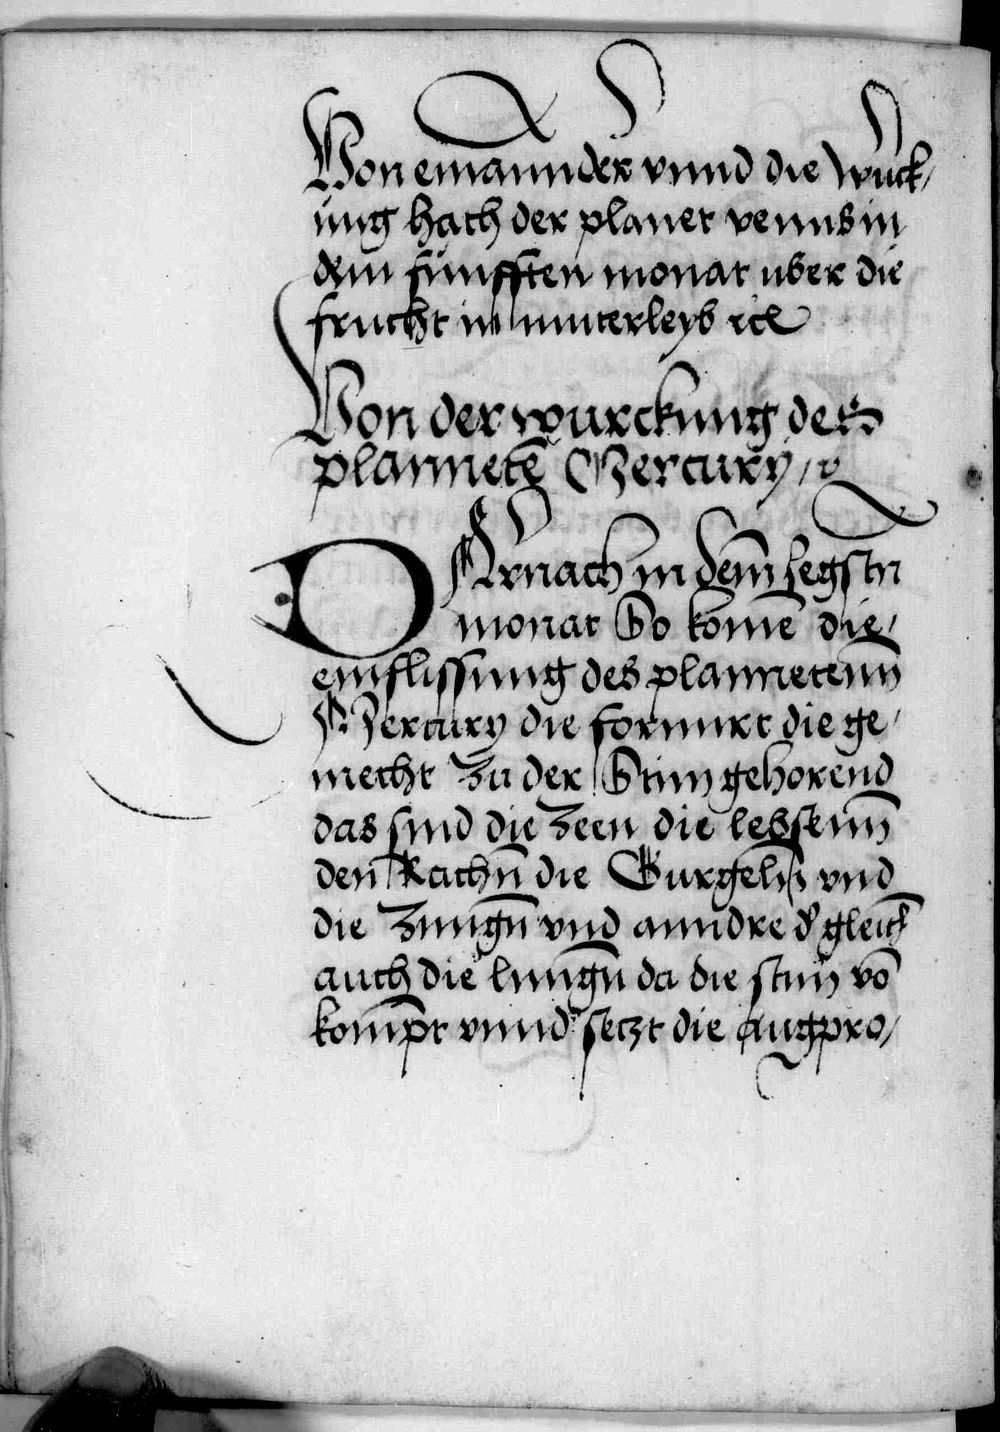 Von einannder vnnd die wurck/
ung hath der planet venus in
dem funfften monat uber die
frucht in muterleyb etc
Von der wurckung des
planneten Mercury / etc
DArnach in dem segstn
monat So komē die /
einflissung des plannetenn
Mercury die formirt die ge /
mecht zu der Stim gehorend
das sind die zeen die lebstenn
den Rachn̄ die Gurgeln vnd
die zungn̄ vnd anndre d' gleich
auch die lungn̄ da die stim vō
kompt vnnd setzt die augpro /